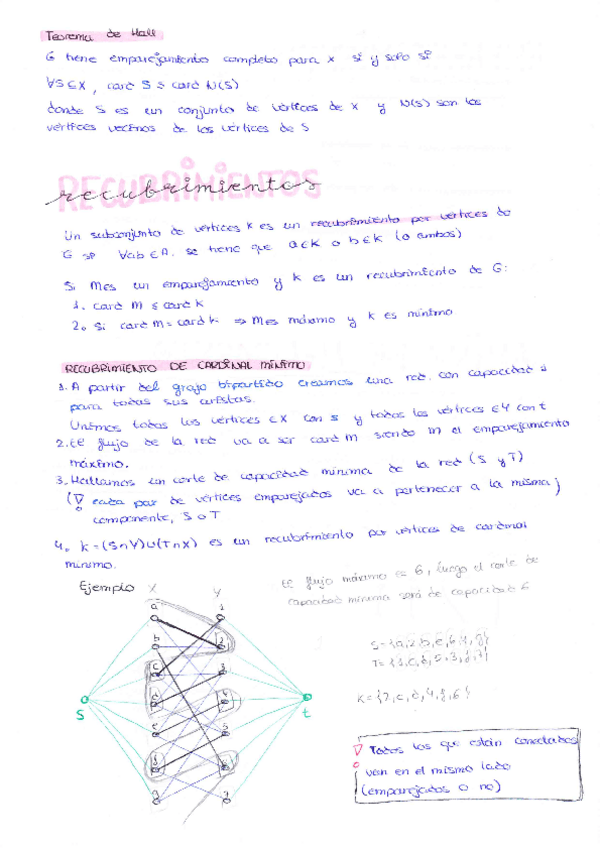 Teorema de Hall
G tiene emparejamiento completo para X si y solo si
∀S⊆X, card S ≤ card N(S)
donde S es un conjunto de vértices de X y N(S) son los
vértices vecinos de los vértices de S
RECUBRIMIENTOS
recubrimientos
Un subconjunto de vértices K es un recubrimiento por vértices de
G si ∀ab∈A, se tiene que a∈K o b∈K (o ambos)
Si M es un emparejamiento y K es un recubrimiento de G:
1. card M ≤ card K
2. Si card M = card K ⇒ M es máximo y K es mínimo
RECUBRIMIENTO DE CARDINAL MÍNIMO
1. A partir del grafo bipartido creamos una red, con capacidad 1
para todas sus aristas.
Unimos todos los vértices ∈X con s y todos los vértices ∈Y con t
2. El flujo de la red va a ser card M siendo M el emparejamiento
máximo.
3. Hallamos un corte de capacidad mínima de la red (S y T)
(cada par de vértices emparejados va a pertenecer a la misma
componente, S o T
4. K = (S∩Y)∪(T∩X) es un recubrimiento por vértices de cardinal
mínimo.
Ejemplo X Y
El flujo máximo es 6, luego el corte de
capacidad mínima será de capacidad 6
a 1
b 2
c 3
d 4
e 5
f
g
S t
K = {2, c, d, 4, f, 6}
Todos los que están conectados
van en el mismo lado
(emparejados o no)